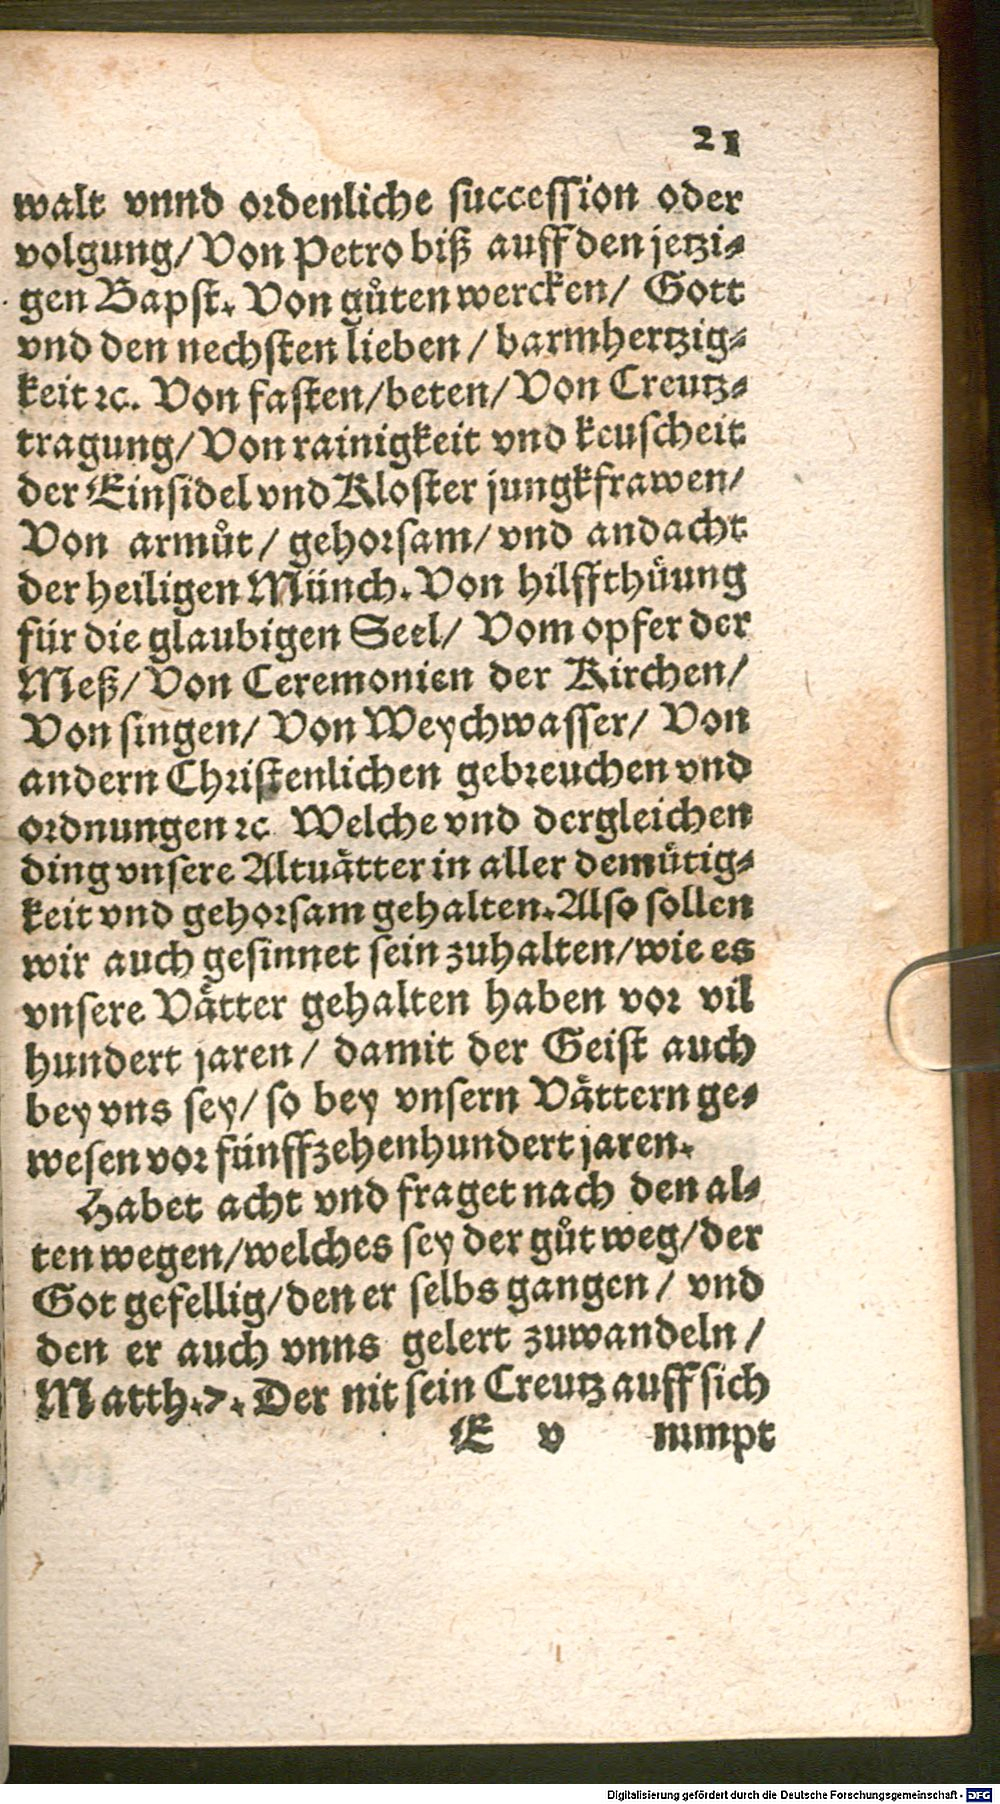 21
walt vnnd ordenliche succession oder
volgung/ Von Petro biß auff den jetzi-
gen Bapst. Von gůten wercken/ Gott
vnd den nechsten lieben/ barmhertzig-
keit ꝛc. Von fasten/beten/ Von Creutz-
tragung/ Von rainigkeit vnd keuscheit
der Einsidel vnd Kloster jungkfrawen/
Von armůt/ gehorsam/ vnd andacht
der heiligen Münch. Von hilffthůung
für die glaubigen Seel/ Vom opfer der
Meß/ Von Ceremonien der Kirchen/
Von singen/ Von Weychwasser/ Von
andern Christenlichen gebreuchen vnd
ordnungen ꝛc Welche vnd dergleichen
ding vnsere Altuåtter in aller demütig-
keit vnd gehorsam gehalten. Also sollen
wir auch gesinnet sein zuhalten/wie es
vnsere Våtter gehalten haben vor vil
hundert jaren/ damit der Geist auch
bey vns sey/ so bey vnsern Våttern ge-
wesen vor fünffzehenhundert jaren.
Habet acht vnd fraget nach den al-
ten wegen/welches sey der gůt weg/der
Got gefellig/den er selbs gangen/ vnd
den er auch vnns gelert zuwandeln/
Matth.7. Der nit sein Creutz auff sich
E v nimpt
Digitalisierung gefördert durch die Deutsche Forschungsgemeinschaft - DFG